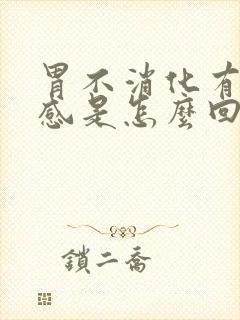 胃不消化有
感是怎麼回
鎖二喬